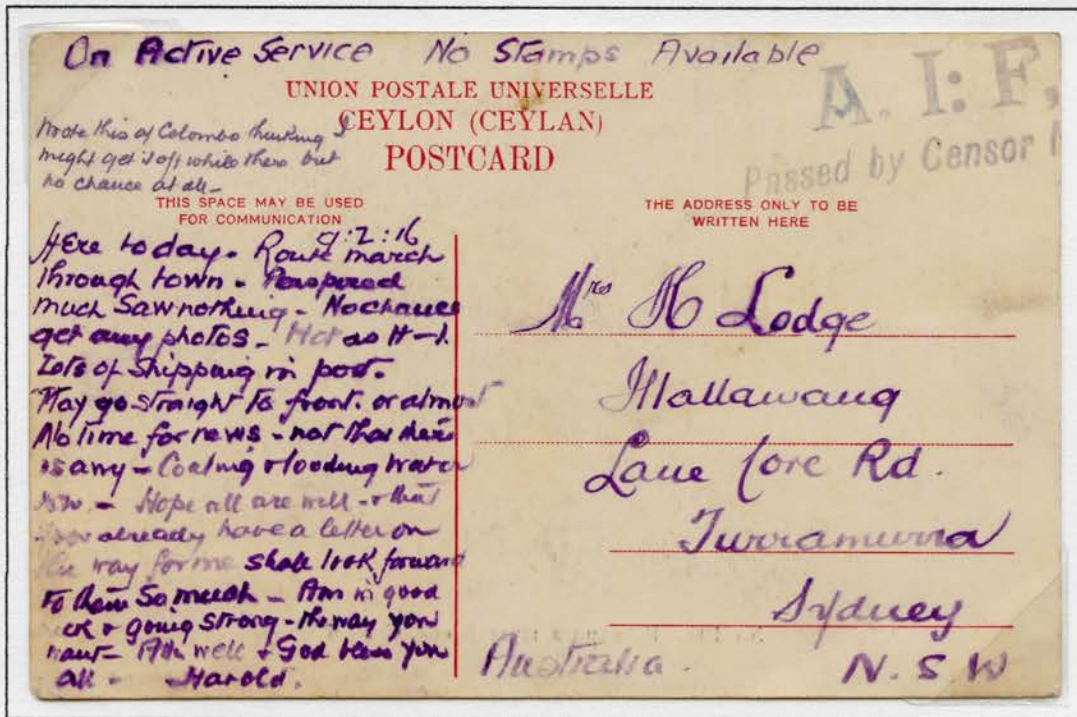 On Active Service No Stamps Available
UNION POSTALE UNIVERSELLE
CEYLON (CEYLAN)
POSTCARD
A. I. F.
Passed by Censor
Wrote this at Colombo thinking I
might get it off while there but
no chance at all -
THIS SPACE MAY BE USED
FOR COMMUNICATION
THE ADDRESS ONLY TO BE
WRITTEN HERE
9:2:16
Here today. Route march
through town - Perspired
much Saw nothing - No chance
get any photos - Hot as H-l.
Lots of Shipping in port.
May go straight to front. or almost
No time for news - not that there
is any - Coaling & loading water
now. - Hope all are well - & that
you already have a letter on
the way for me shall look forward
to them So much - Am in good
& going strong - the way you
want - well & God bless you
all - Harold.
Mrs H Lodge
Lane Cove Rd.
Turramurra
Sydney
Australia. N. S. W